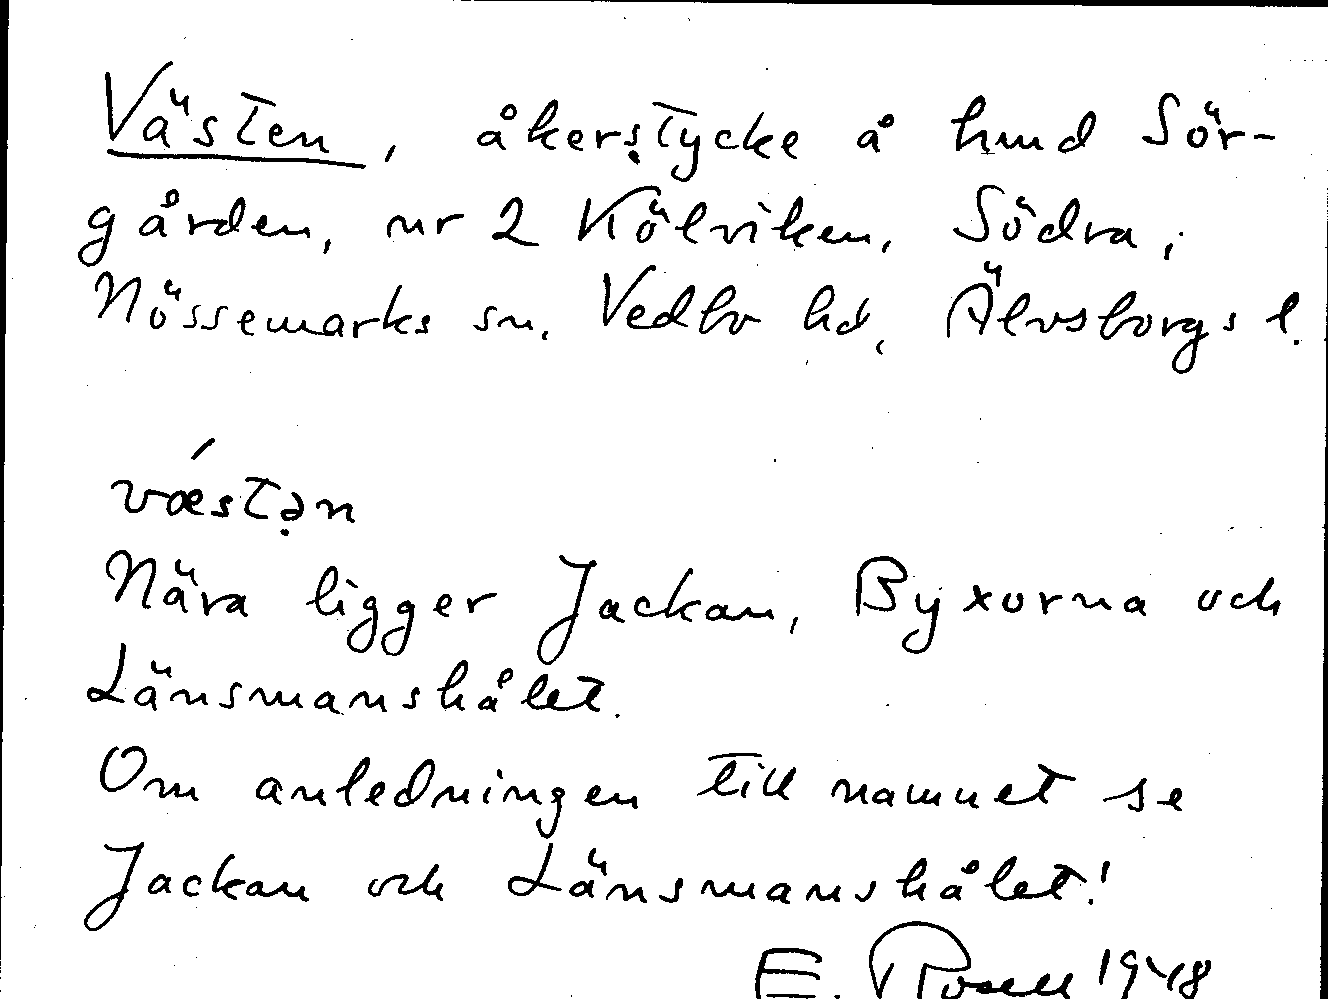 Västen, åkerstycke å hmd Sör-
gården, nr 2 Kölviken, Södra,
Nössemarks sn. Vedbo hd, Älvsborgs l.
væ´stən
Nära ligger Jackan, Byxorna och
Länsmanshålet.
Om anledningen till namnet se
Jackan och Länsmanshålet!
E. Rosell 1948